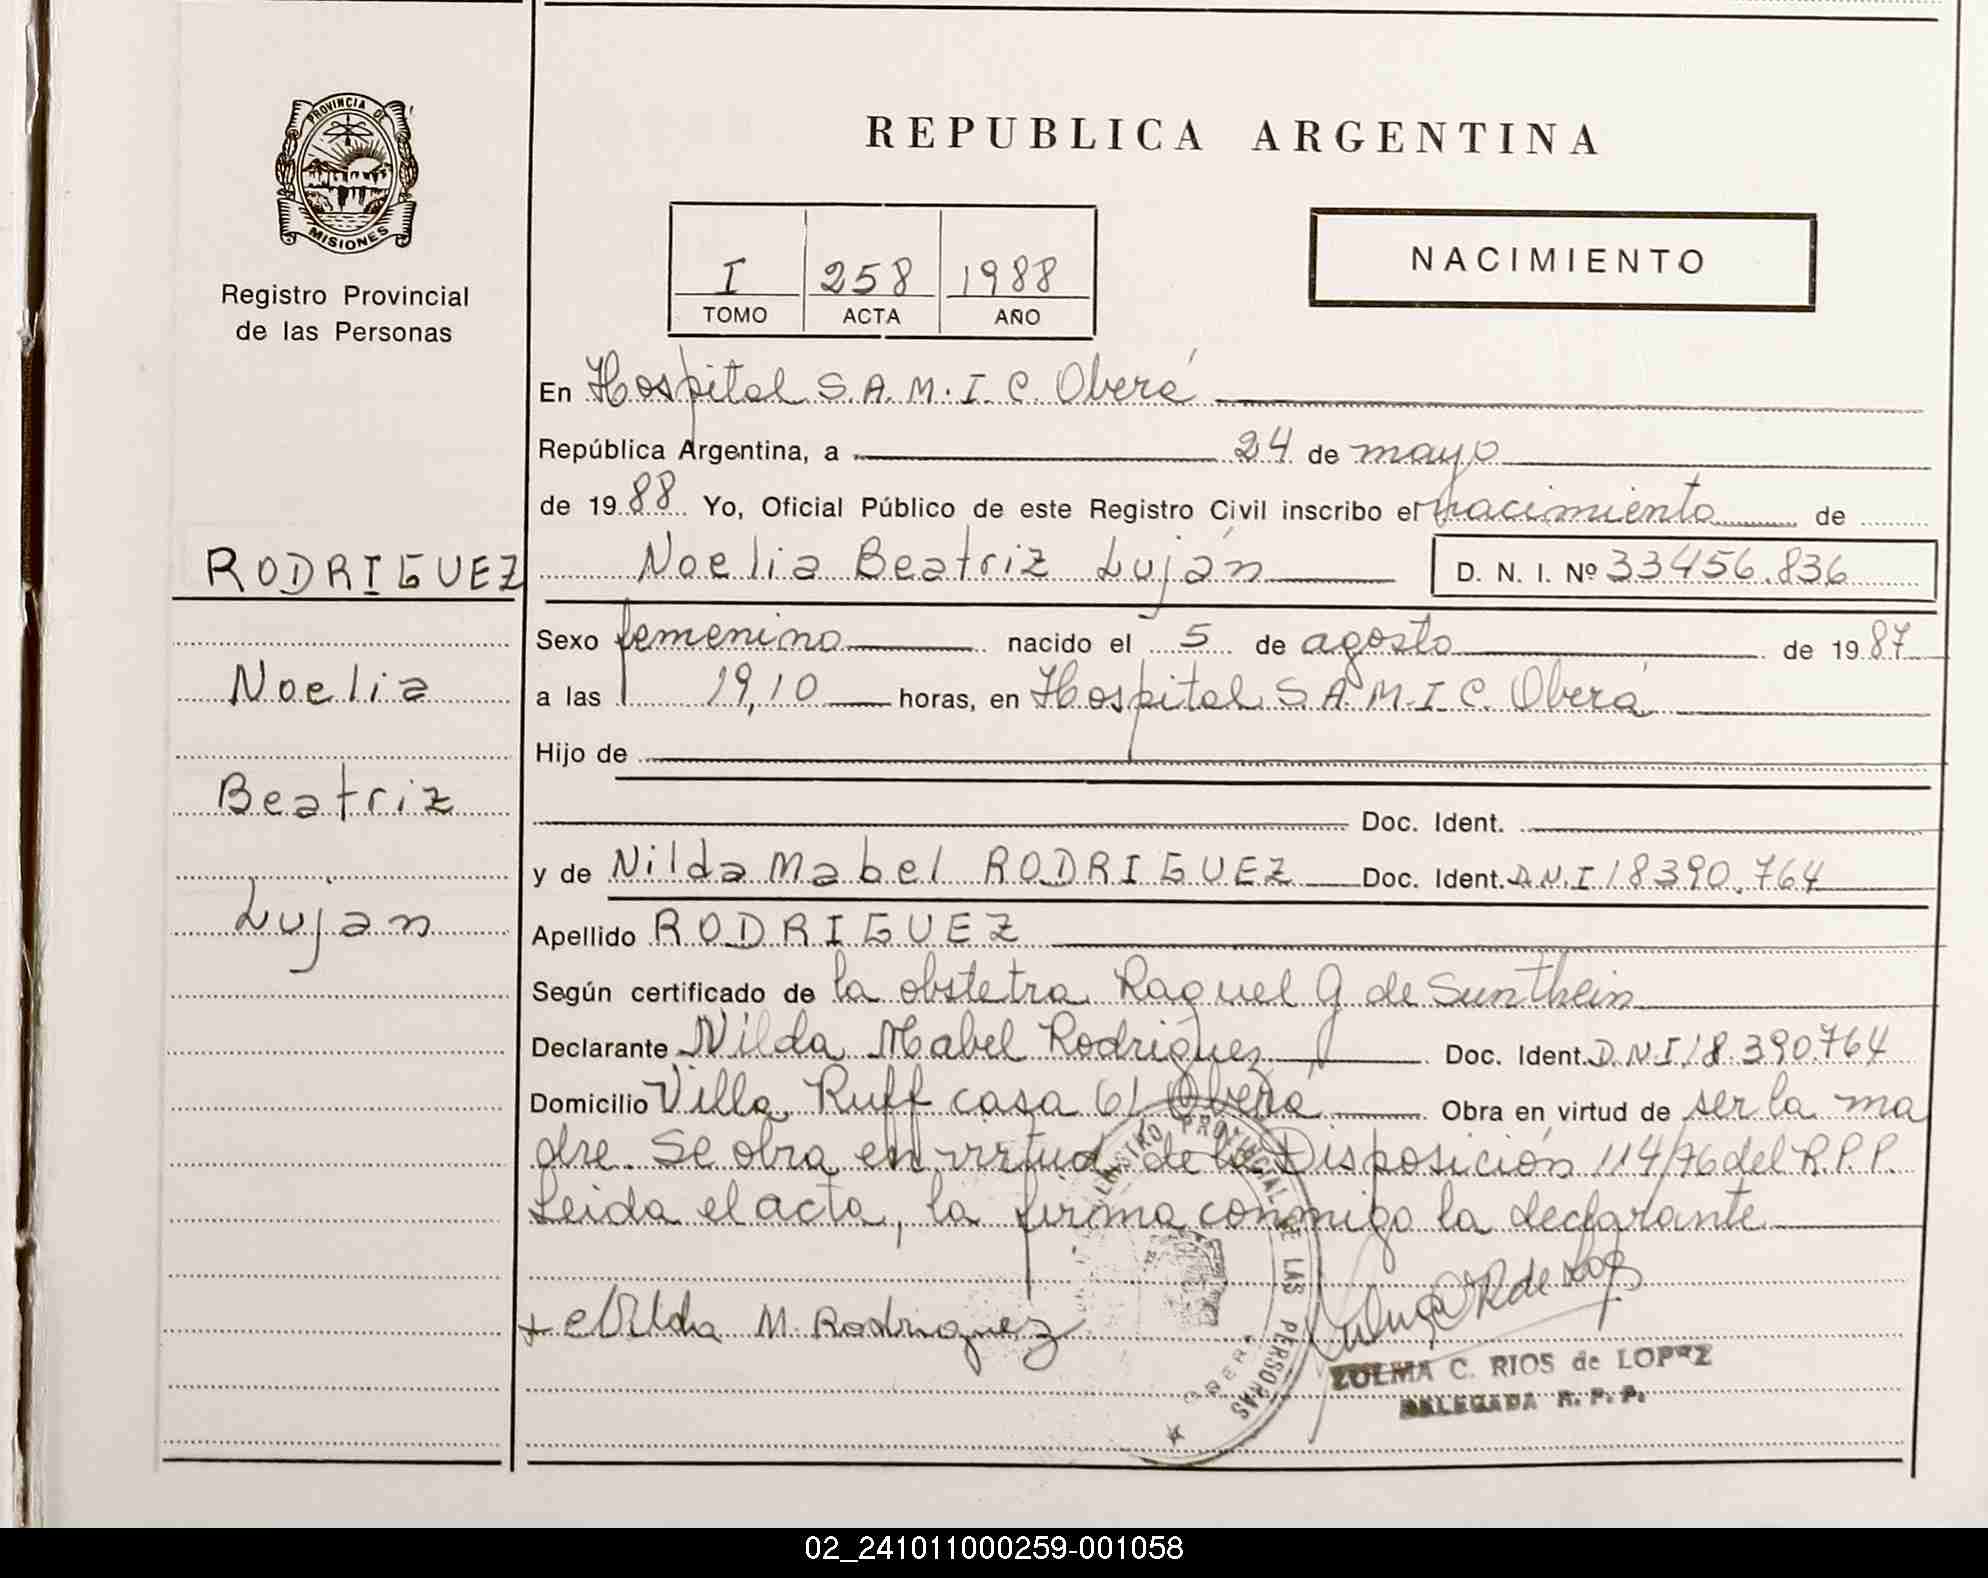 PROVINCIA DE
MISIONES
Registro Provincial
de las Personas
REPUBLICA ARGENTINA
I 258 1988
TOMO ACTA AÑO
NACIMIENTO
En Hospital S.A.M.I.C. Oberá
República Argentina, a 24 de mayo
de 1988 Yo, Oficial Público de este Registro Civil inscribo el nacimiento de
RODRIGUEZ
Noelia Beatriz Luján D. N. I. Nº 33456.836
Sexo femenino nacido el 5 de agosto de 1987
Noelia
a las 19,10 horas, en Hospital S.A.M.I.C. Oberá
Hijo de
Beatriz
Doc. Ident.
y de Nilda Mabel RODRIGUEZ Doc. Ident. D.N.I 18390.764
Luján
Apellido RODRIGUEZ
Según certificado de la obstetra Raquel G de Sunthein
Declarante Nilda Mabel Rodriguez Doc. Ident. D.N.I 18.390.764
Domicilio Villa Ruff casa 61 Oberá Obra en virtud de ser la ma
dre. Se obra en virtud de la Disposición 114/76 del R.P.P.
Leida el acta, la firma conmigo la declarante
REGISTRO PROVINCIAL DE LAS PERSONAS
OBERA
Nilda M. Rodriguez
ZULMA C. RIOS de LOPEZ
DELEGADA R. P. P.
02_241011000259-001058